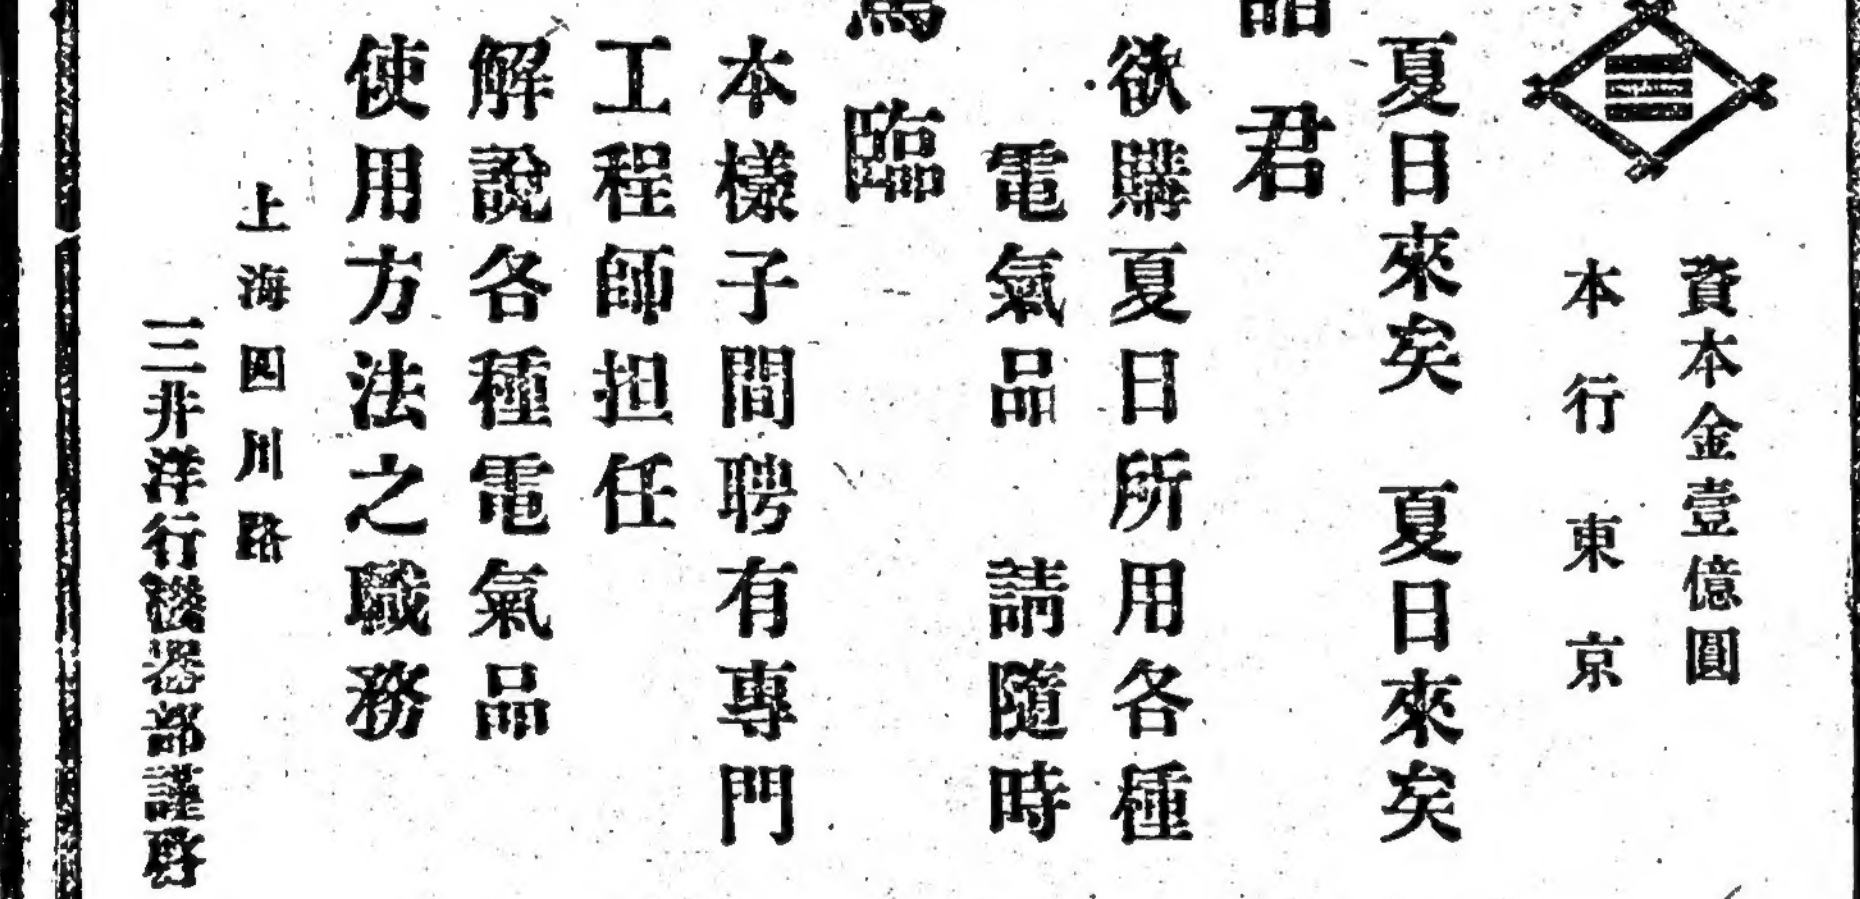 資本金壹億圓
本行東京
夏日來矣 夏日來矣
諸君
欲購夏日所用各種
電氣品 請隨時
駕臨
本樣子間聘有專門
工程師担任
解說各種電氣品
使用方法之職務
上海四川路
三井洋行機器部謹啓